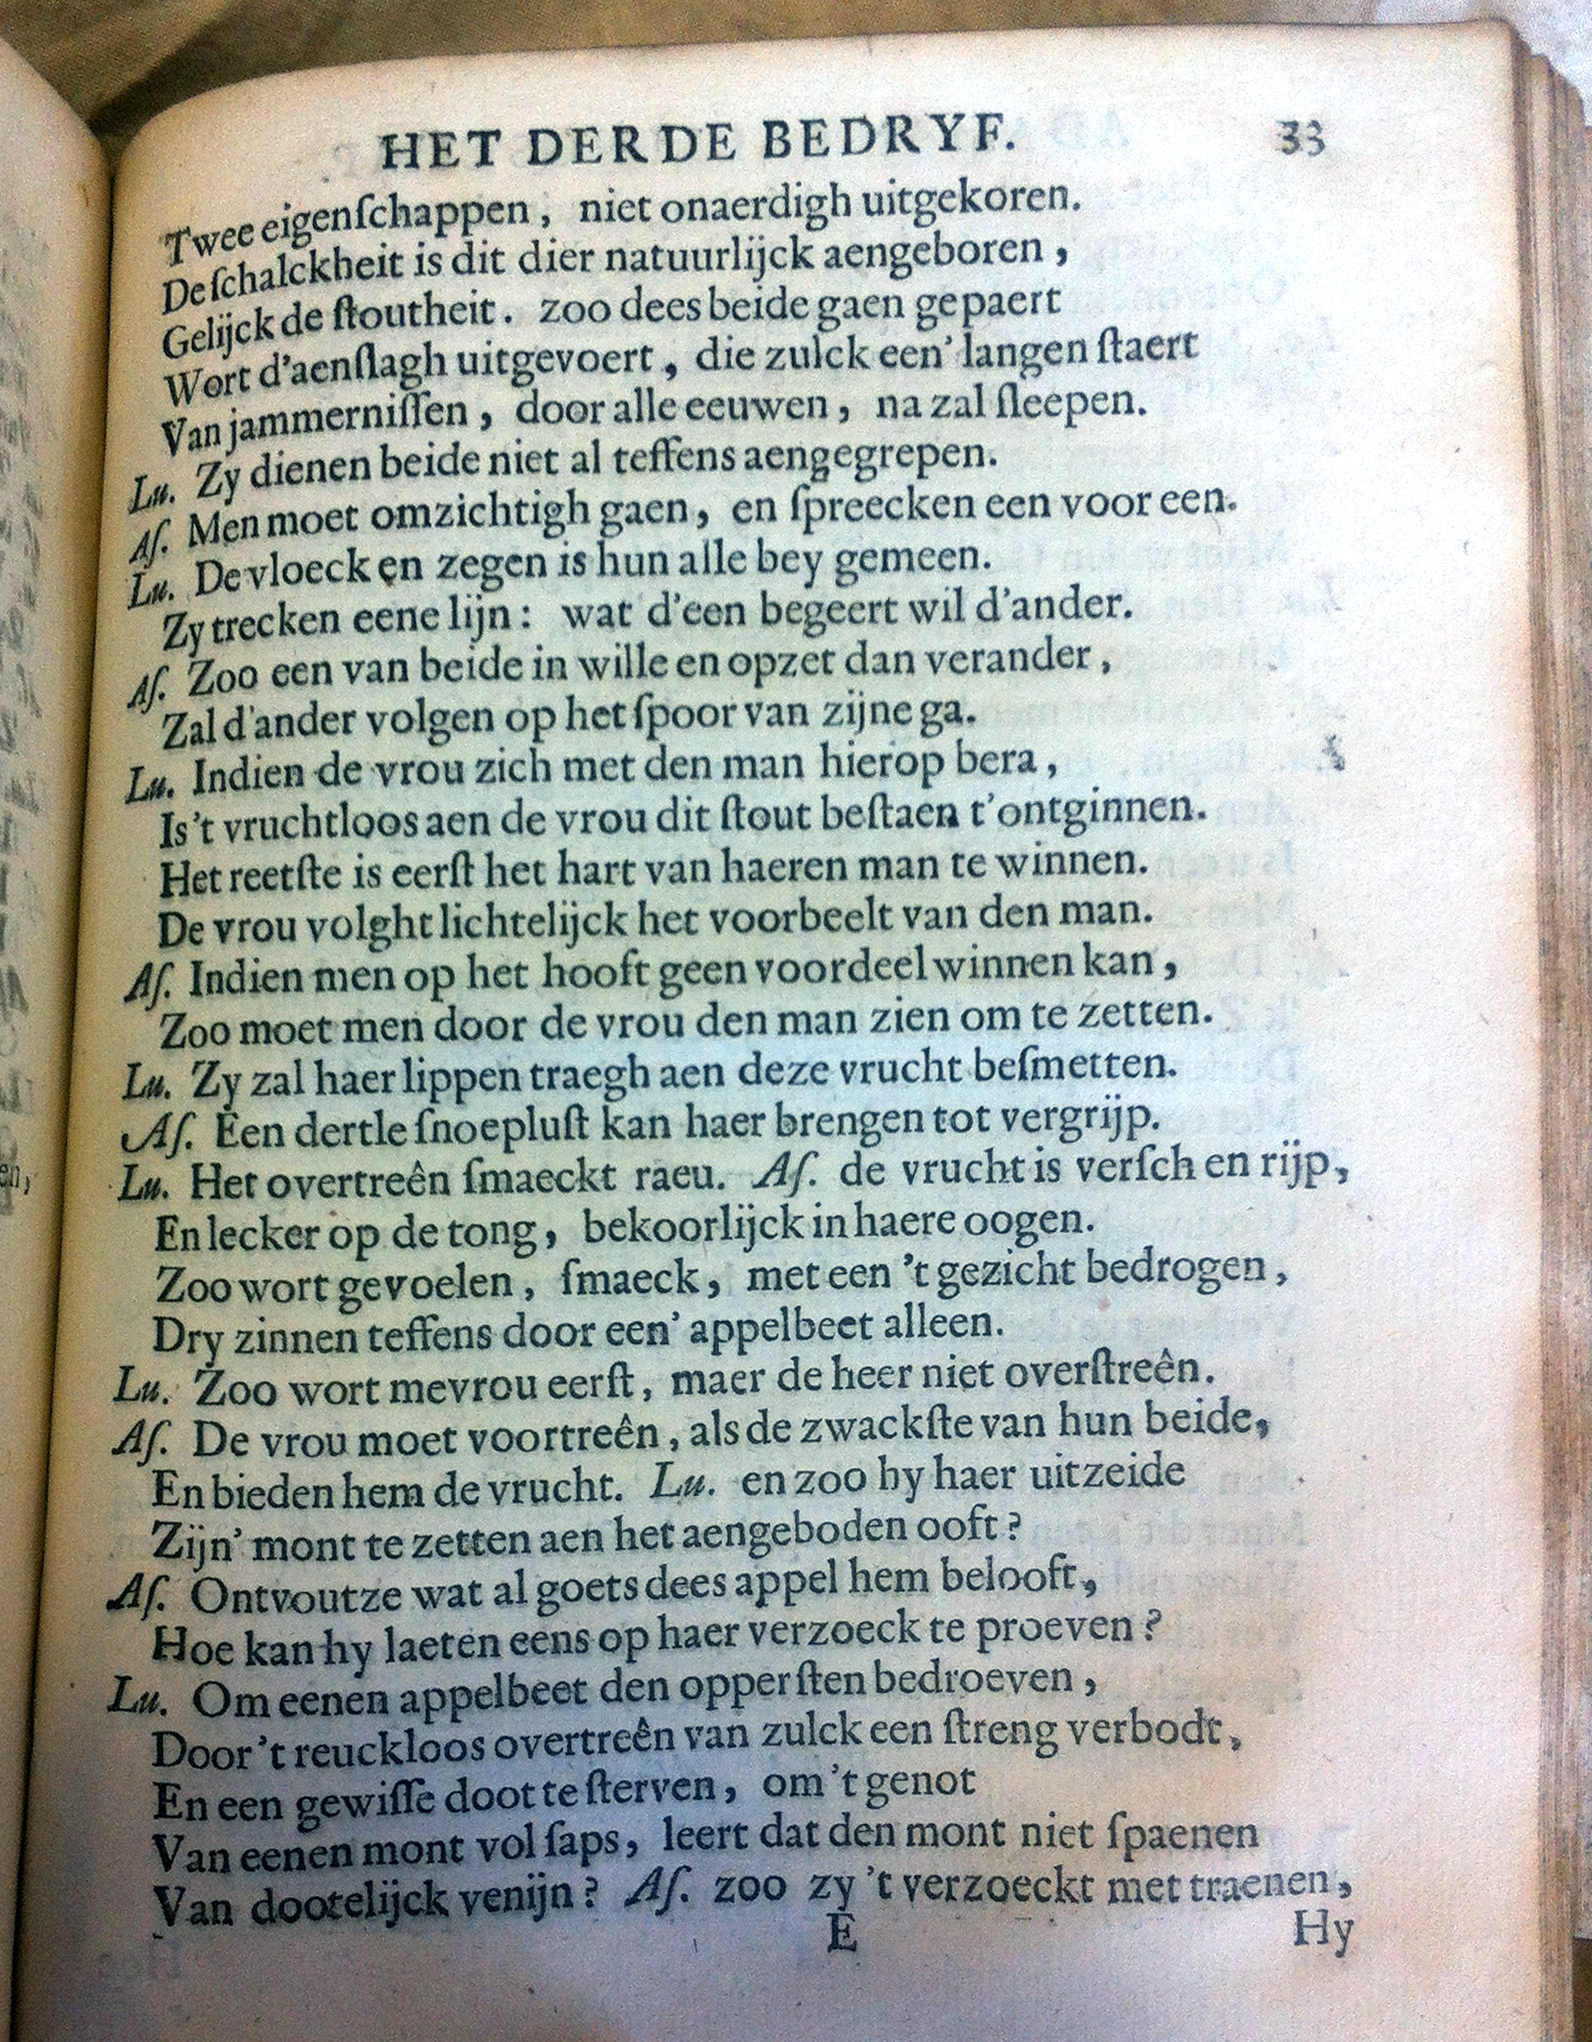 HET DERDE BEDRYF. 33
Twee eigenſchappen, niet onaerdigh uitgekoren.
De ſchalckheit is dit dier natuurlijck aengeboren,
Gelijck de ſtoutheit. zoo dees beide gaen gepaert
Wort d'aenſlagh uitgevoert, die zulck een' langen ſtaert
Van jammerniſſen, door alle eeuwen, na zal ſleepen.
Lu. Zy dienen beide niet al teffens aengegrepen.
Aſ. Men moet omzichtigh gaen, en ſpreecken een voor een.
Lu. De vloeck en zegen is hun alle bey gemeen.
Zy trecken eene lijn: wat d'een begeert wil d'ander.
Aſ. Zoo een van beide in wille en opzet dan verander,
Zal d'ander volgen op het ſpoor van zijne ga.
Lu. Indien de vrou zich met den man hierop bera,
Is 't vruchtloos aen de vrou dit ſtout beſtaen t'ontginnen.
Het reetſte is eerſt het hart van haeren man te winnen.
De vrou volght lichtelijck het voorbeelt van den man.
Aſ. Indien men op het hooft geen voordeel winnen kan,
Zoo moet men door de vrou den man zien om te zetten.
Lu. Zy zal haer lippen traegh aen deze vrucht beſmetten.
Aſ. Een dertle ſnoepluſt kan haer brengen tot vergrijp.
Lu. Het overtreên ſmaeckt raeu. Aſ. de vrucht is verſch en rijp,
En lecker op de tong, bekoorlijck in haere oogen.
Zoo wort gevoelen, ſmaeck, met een 't gezicht bedrogen,
Dry zinnen teffens door een' appelbeet alleen.
Lu. Zoo wort mevrou eerſt, maer de heer niet overſtreên.
Aſ. De vrou moet voortreên, als de zwackſte van hun beide,
En bieden hem de vrucht. Lu. en zoo hy haer uitzeide
Zijn' mont te zetten aen het aengeboden ooft?
Aſ. Ontvoutze wat al goets dees appel hem belooft,
Hoe kan hy laeten eens op haer verzoeck te proeven?
Lu. Om eenen appelbeet den opperſten bedroeven,
Door 't reuckloos overtreên van zulck een ſtreng verbodt,
En een gewiſſe doot te ſterven, om 't genot
Van eenen mont vol ſaps, leert dat den mont niet ſpaenen
Van dootelijck venijn? Aſ. zoo zy 't verzoeckt met traenen,
E Hy